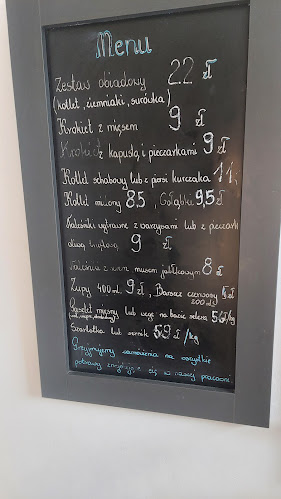 Menu
Zestaw obiadowy 22 zł
(kotlet, ziemniaki, surówka)
Krokiet z mięsem 9 zł
Krokiet z kapustą i pieczarkami 9 zł
Kotlet schabowy lub z piersi kurczaka 11,
Kotlet mielony 8.5 Gołąbki 9,5 zł
Naleśniki wytrawne z warzywami lub z pieczark
9 zł
Naleśniki z musem jabłkowym 8 zł
Zupy 400 ml 9 zł, Barszcz czerwony zł
200 ml
Pasztet mięsny lub wege na bazie selera 56 zł/kg
Szarlotka lub sernik 59 zł/kg
Przyjmujemy zamówienia na wszystkie
potrawy znajdujące się w naszej pracowni.